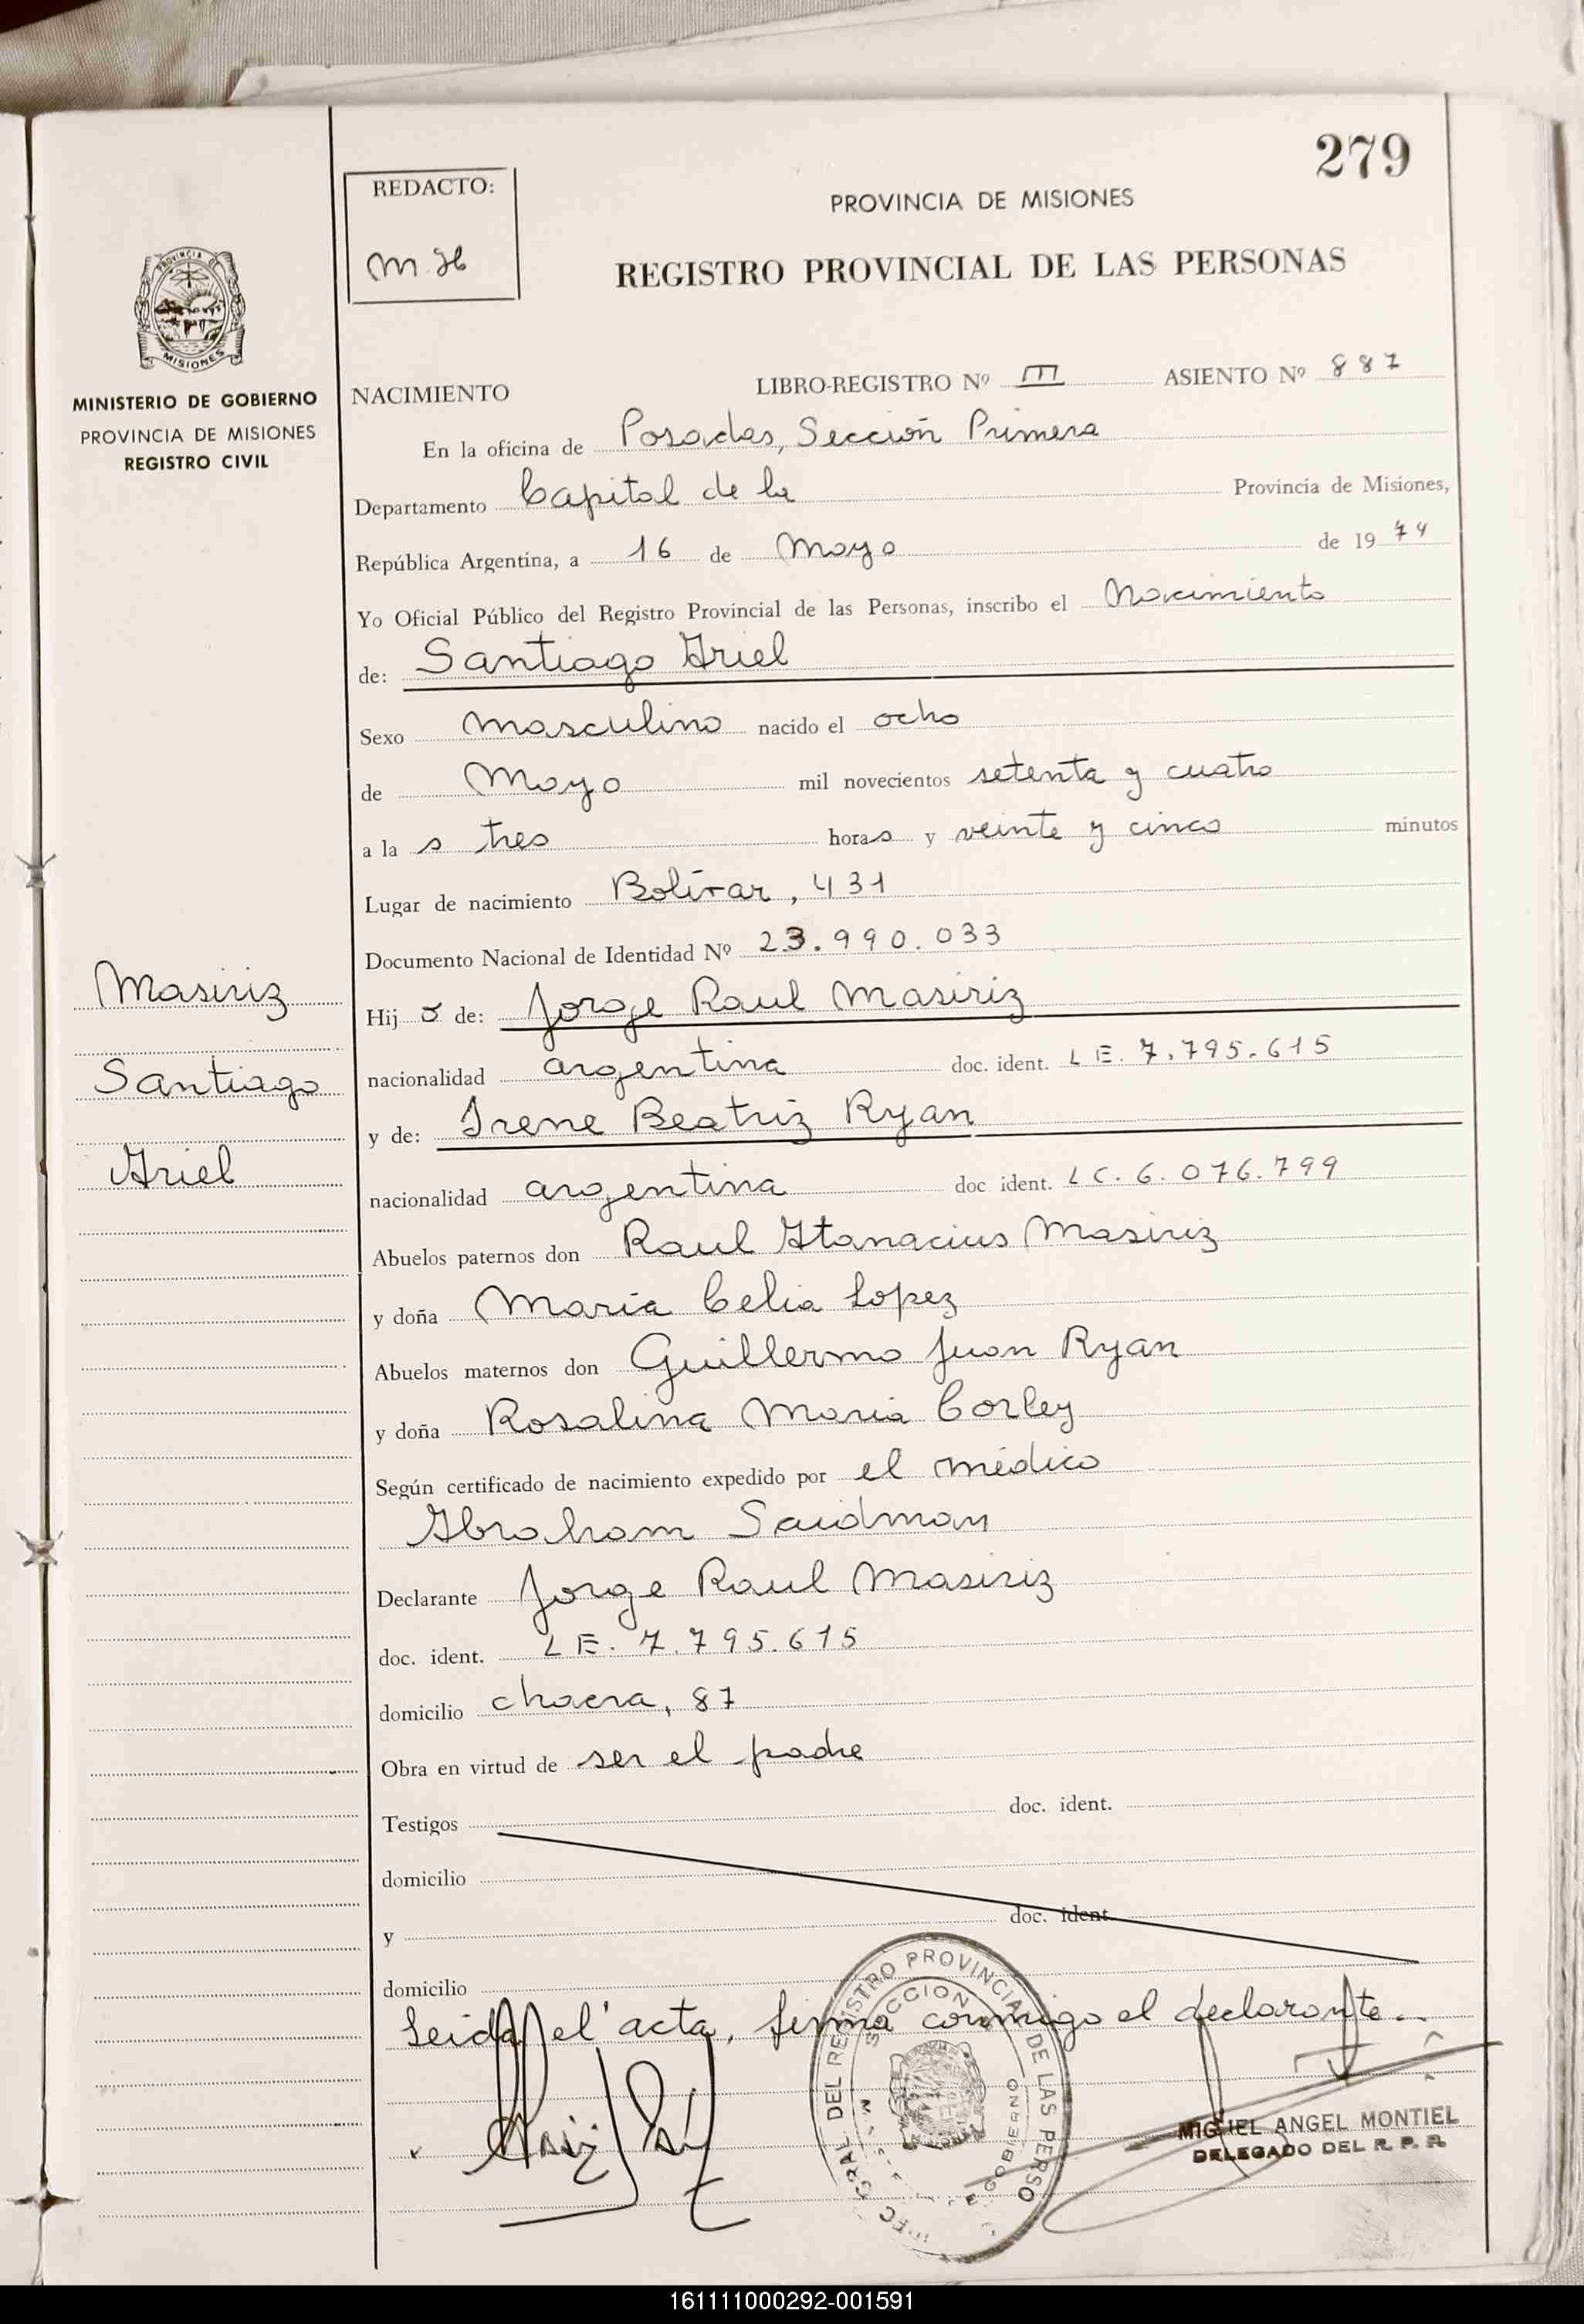 279
REDACTO:
M.H
PROVINCIA DE MISIONES
REGISTRO PROVINCIAL DE LAS PERSONAS
PROVINCIA DE
MISIONES
MINISTERIO DE GOBIERNO
PROVINCIA DE MISIONES
REGISTRO CIVIL
NACIMIENTO LIBRO-REGISTRO Nº III ASIENTO Nº 887
En la oficina de Posadas, Sección Primera
Departamento Capital de la Provincia de Misiones,
República Argentina, a 16 de Mayo de 1974
Yo Oficial Público del Registro Provincial de las Personas, inscribo el Nacimiento
de: Santiago Ariel
Sexo masculino nacido el ocho
de Mayo mil novecientos setenta y cuatro
a las tres horas y veinte y cinco minutos
Lugar de nacimiento Bolívar, 431
Documento Nacional de Identidad Nº 23.990.033
Masiriz
Santiago
Ariel
Hijo de: Jorge Raul Masiriz
nacionalidad argentina doc. ident. LE. 7.795.615
y de: Irene Beatriz Ryan
nacionalidad argentina doc ident. LC. 6.076.799
Abuelos paternos don Raul Atanacius Masiriz
y doña María Celia Lopez
Abuelos maternos don Guillermo Juan Ryan
y doña Rosalina María Corley
Según certificado de nacimiento expedido por el médico
Abraham Saidman
Declarante Jorge Raul Masiriz
doc. ident. LE. 7.795.615
domicilio chacra, 87
Obra en virtud de ser el padre
Testigos doc. ident.
domicilio
y doc. ident.
domicilio
Leida el acta, firma conmigo el declarante..
GRAL DEL REGISTRO PROVINCIAL DE LAS PERSO
SECCION
GOBIERNO
MIGUEL ANGEL MONTIEL
DELEGADO DEL R. P. P.
161111000292-001591